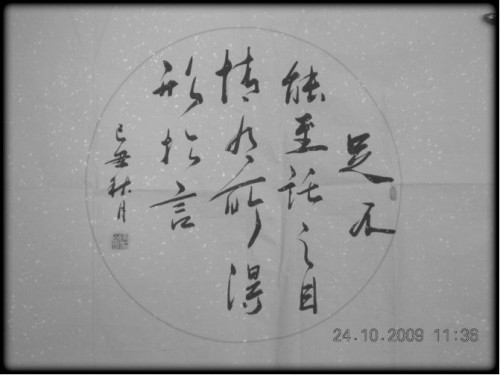 足不
能至託之目
情有所得
形於言
己丑秋月
24.10.2009 11:36